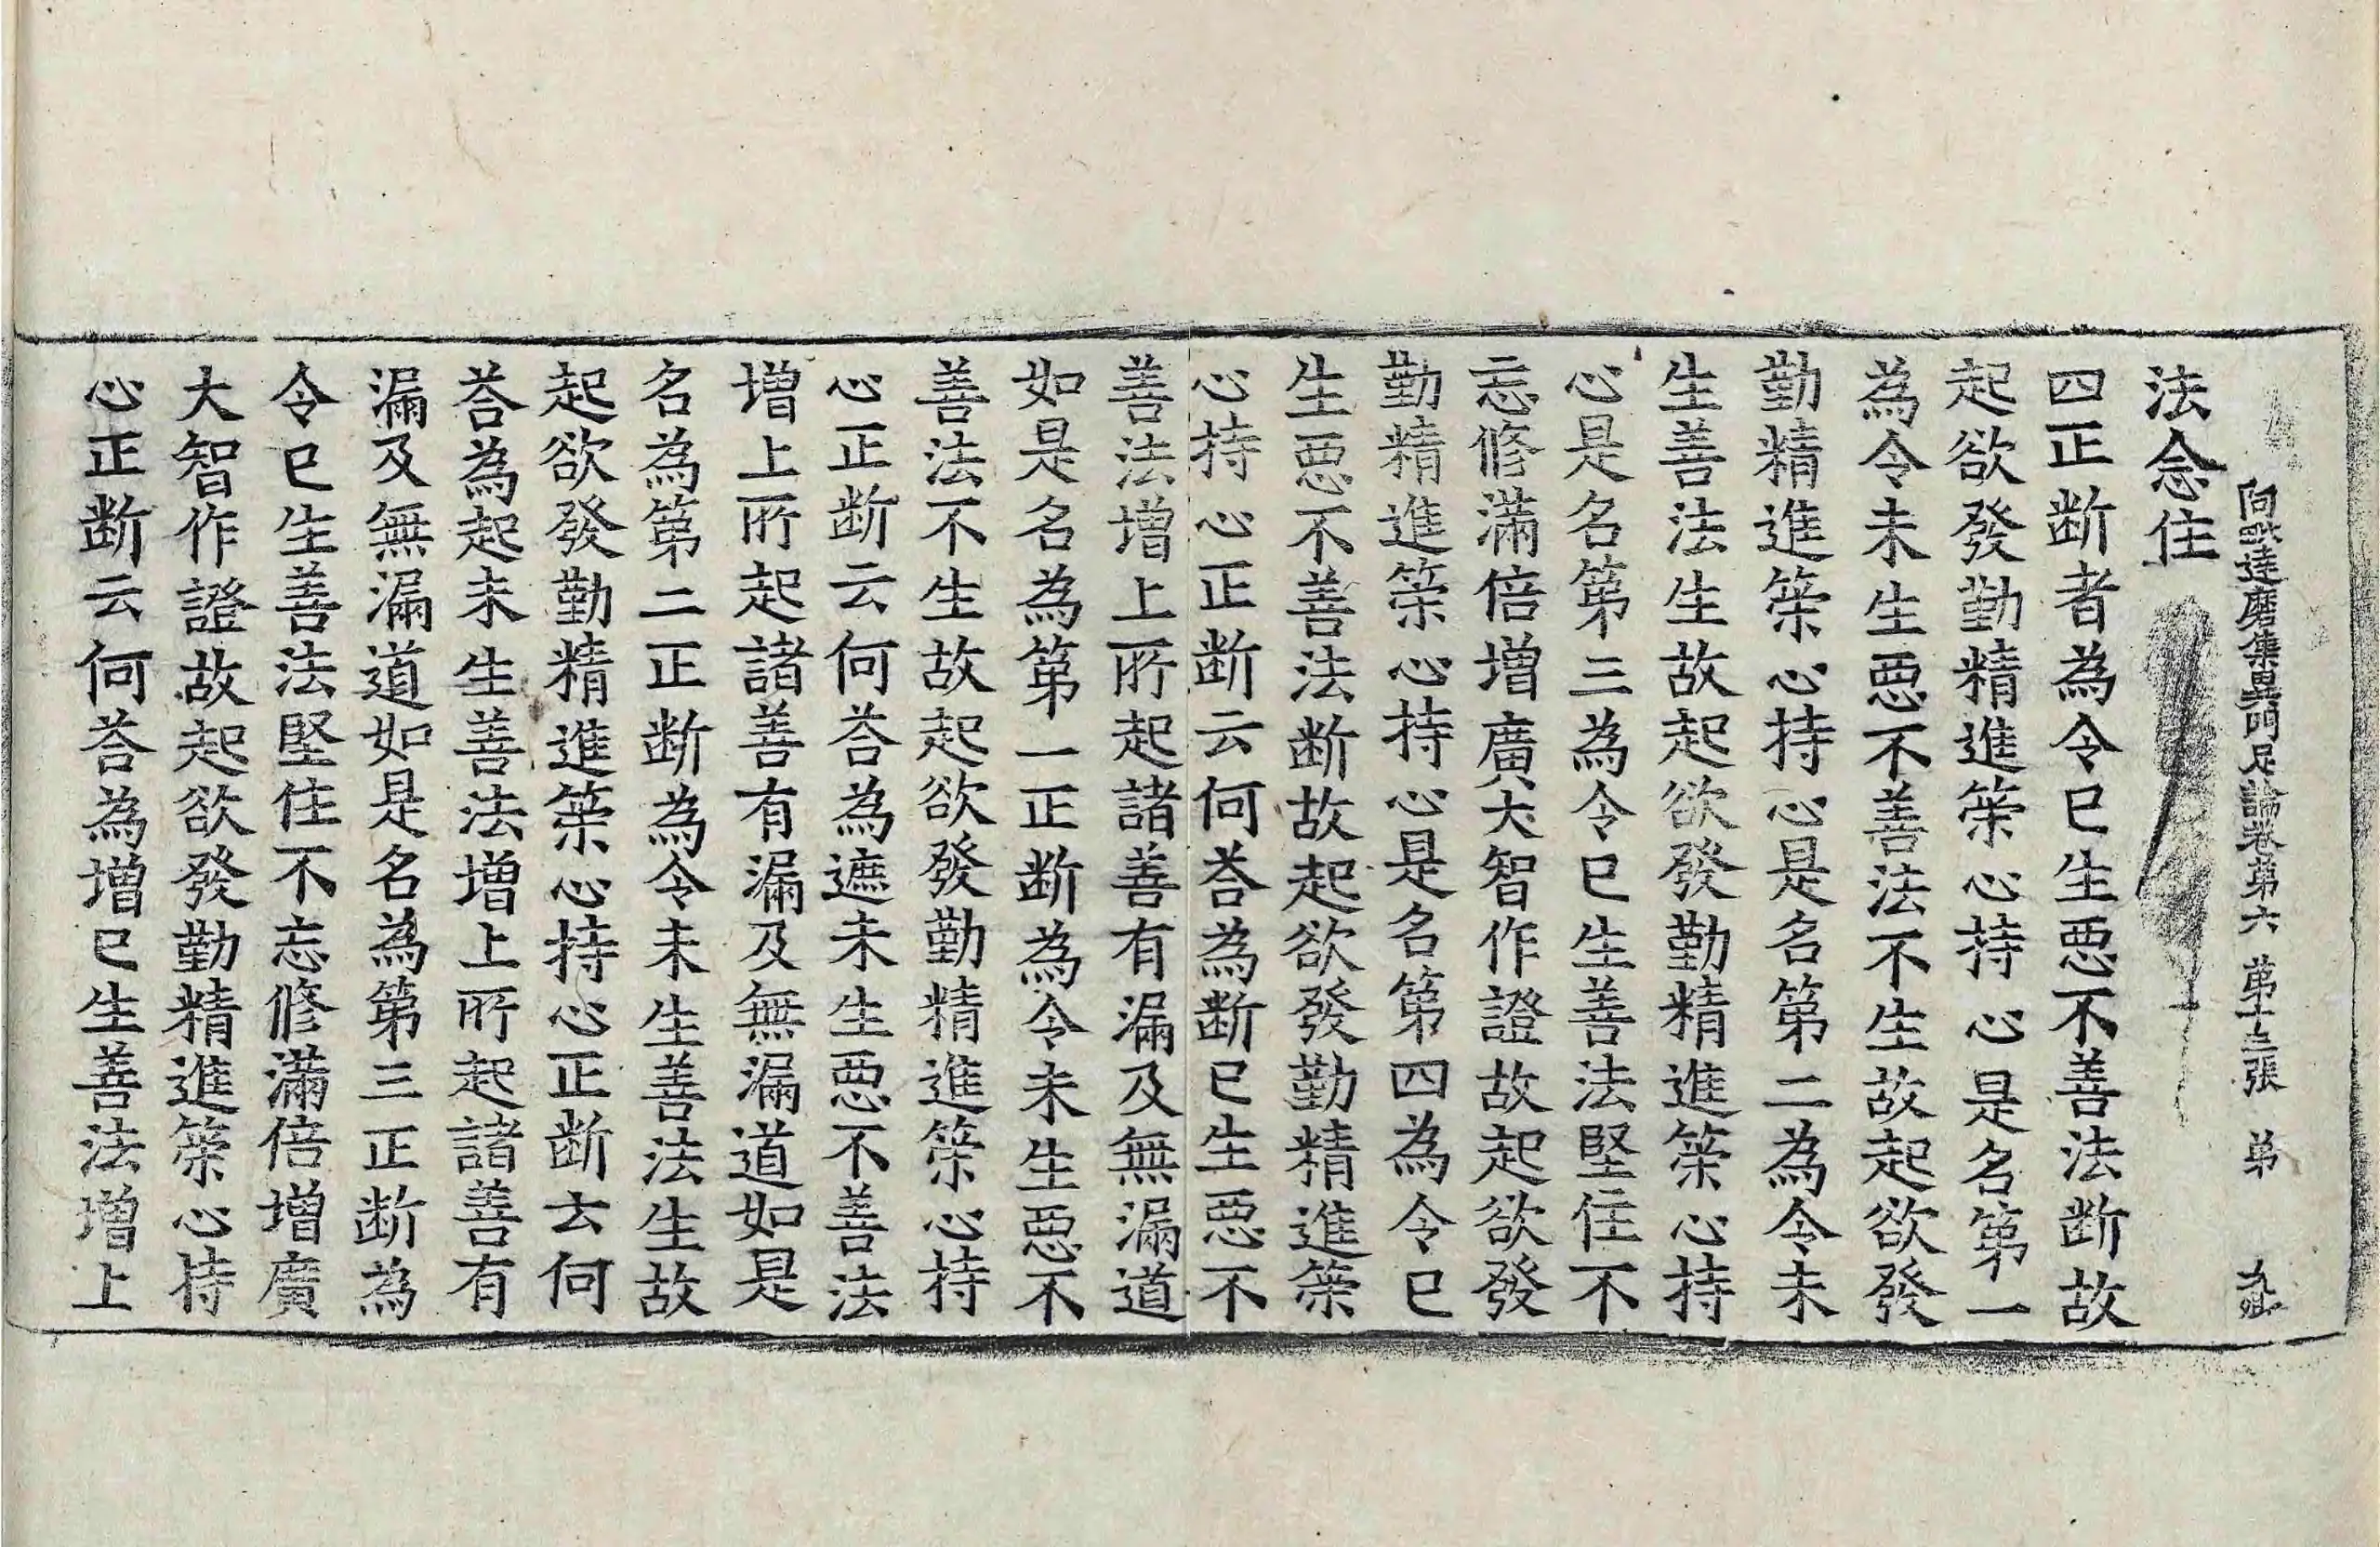 阿毗達磨集異門足論卷第六 第十三張 弟
法念住
四正断者為令已生惡不善法断故
起欲發勤精進䇿心持心是名第一
為令未生惡不善法不生故起欲發
勤精進䇿心持心是名第二為令未
生善法生故起欲發勤精進䇿心持
心是名第三為令已生善法堅住不
忘修滿倍增廣大智作證故起欲發
勤精進䇿心持心是名第四為令已
生惡不善法断故起欲發勤精進䇿
心持心正断云何荅為断已生惡不
善法增上所起諸善有漏及無漏道
如是名為第一正断為令未生惡不
善法不生故起欲發勤精進䇿心持
心正断云何荅為遮未生惡不善法
增上所起諸善有漏及無漏道如是
名為第二正断為令未生善法生故
起欲發勤精進䇿心持心正断云何
荅為起未生善法增上所起諸善有
漏及無漏道如是名為第三正断為
令已生善法堅住不忘修滿倍增廣
大智作證故起欲發勤精進䇿心持
心正断云何荅為增已生善法增上